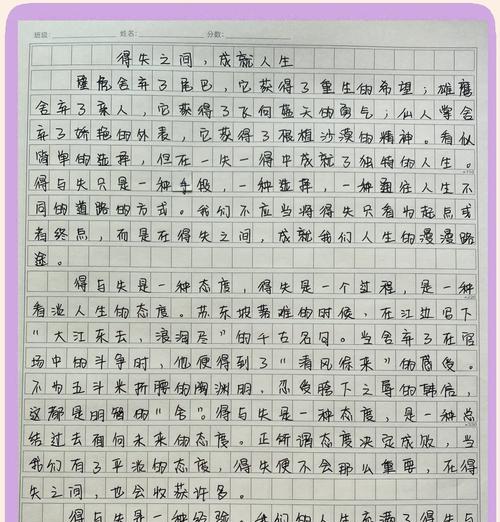 班级： 姓名： 分数：
得失之间，成就人生
壁虎舍弃了尾巴，它获得了重生的希望；雄鹰
舍弃了亲人，它获得了飞向蓝天的勇气；仙人掌舍
弃了娇艳的外表，它获得了根植沙漠的精神。看似
简单的选择，但在一失一得中成就了独特的人生。
得与失只是一种手段，一种选择，一种通往人生不
同的道路的方式。我们不应当将得失只看为起点或
者终点，而是在得失之间，成就我们人生的漫漫路
途。
得与失是一种态度，得失是一个过程，是一种
看淡人生的态度。苏东坡落难的时候，在江边写下
“大江东去，浪淘尽”的千古名句。当舍弃了在官
场中的斗争时，他便得到了“清风徐来”的感受。
不为五斗米折腰的陶渊明，忍受胯下之辱的韩信，
这都是明智的“舍”。得与失是一种态度，是一种总
结过去面向未来的态度。正所谓态度决定成败，当
我们有了平淡的态度，得失便不会那么重要，在得
失之间，也会收获许多。
得与失是一种经验。我们的人生充满了得失与